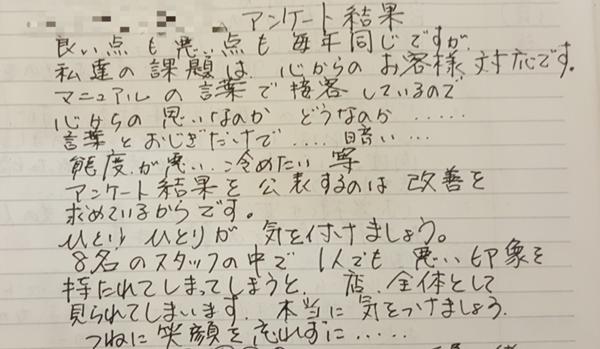 アンケート結果
良い点も悪い点も毎年同じですが、
私達の課題は、心からのお客様対応です。
マニュアルの言葉で接客しているので
心からの思いなのか どうなのか……
言葉とおじぎだけで……暗い…
態度が悪い…冷めたい 等
アンケート結果を公表するのは改善を
求めているからです。
ひとりひとりが 気を付けましょう。
8名のスタッフの中で 1人でも 悪い印象を
持たれてしまってしまうと、店、全体として
見られてしまいます。本当に気をつけましょう。
つねに笑顔を忘れずに……